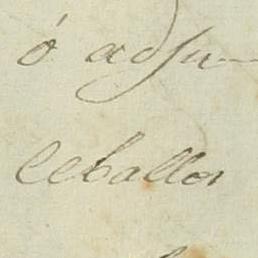 ó adju
Ceballos